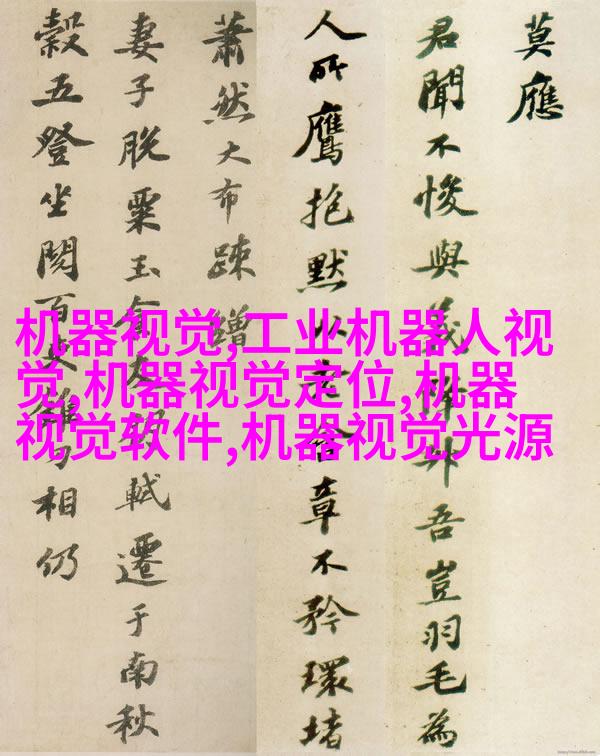 莫應
君聞不悛與義降升吾豈羽毛為
人所鷹抱默以含章不矜環堵
蕭然大布疎繒
妻子脫粟玉食友軾遷于南秋
穀五登坐閱百吏相仍
机器视觉,工业机器人视
觉,机器视觉定位,机器
视觉软件,机器视觉光源